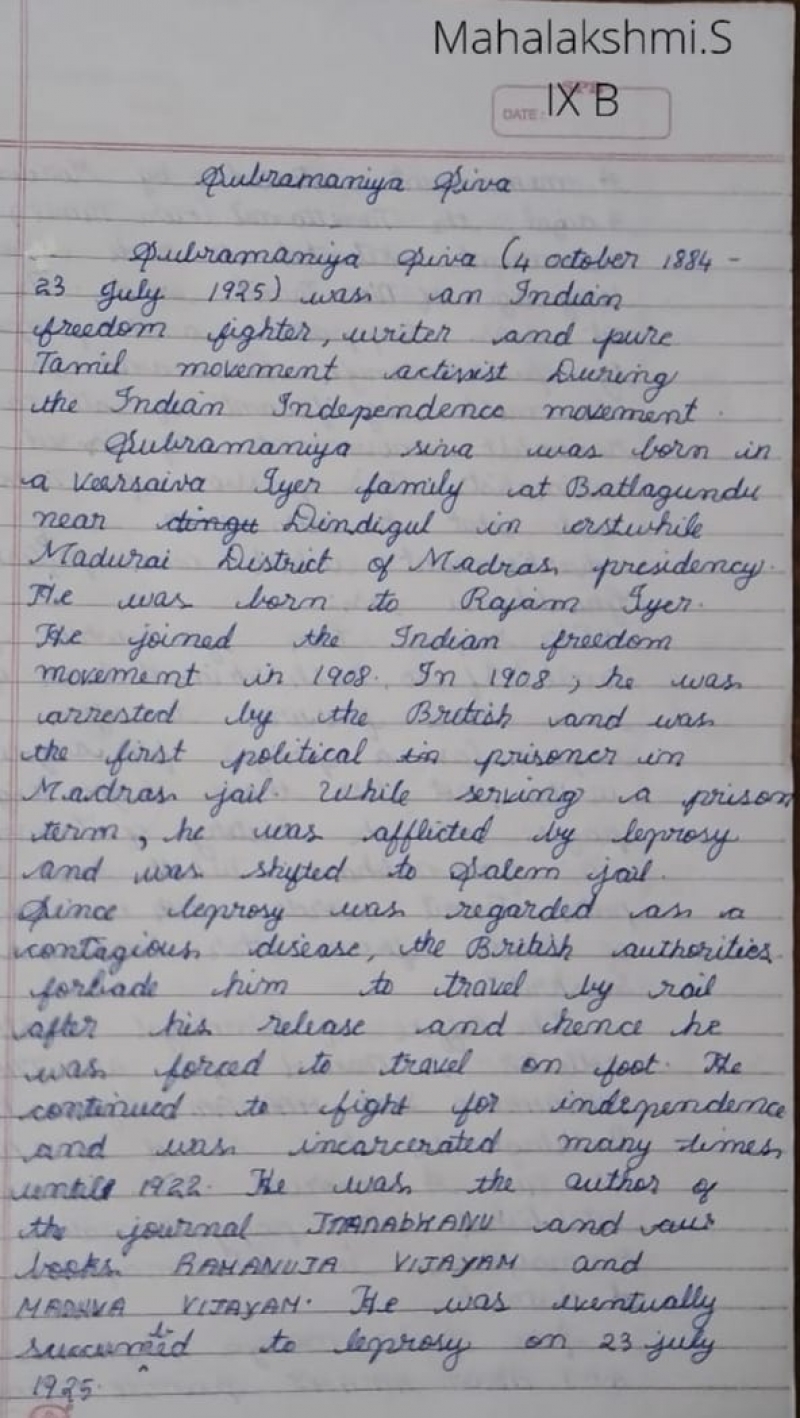 Mahalakshmi.S
IX B
DATE:
Subramaniya Siva
Subramaniya Siva (4 october 1884 -
23 July 1925) was an Indian
freedom fighter, writer and pure
Tamil movement activist During
the Indian Independence movement.
Subramaniya siva was born in
a Veersaiva Iyer family at Batlagundu
near dingu Dindigul in erstwhile
Madurai District of Madras presidency.
He was born to Rajam Iyer.
He joined the Indian freedom
movement in 1908. In 1908, he was
arrested by the British and was
the first political in prisoner in
Madras jail. While serving a prison
term, he was afflicted by leprosy
and was shifted to Salem jail.
Since leprosy was regarded as a
contagious disease, the British authorities
forbade him to travel by rail
after his release and hence he
was forced to travel on foot. He
continued to fight for independence
and was incarcerated many times
until 1922. He was the author of
the journal JNANABHANU and
books RAMANUJA VIJAYAM and
MADHVA VIJAYAM. He was eventually
succumbed to leprosy on 23 july
1925.